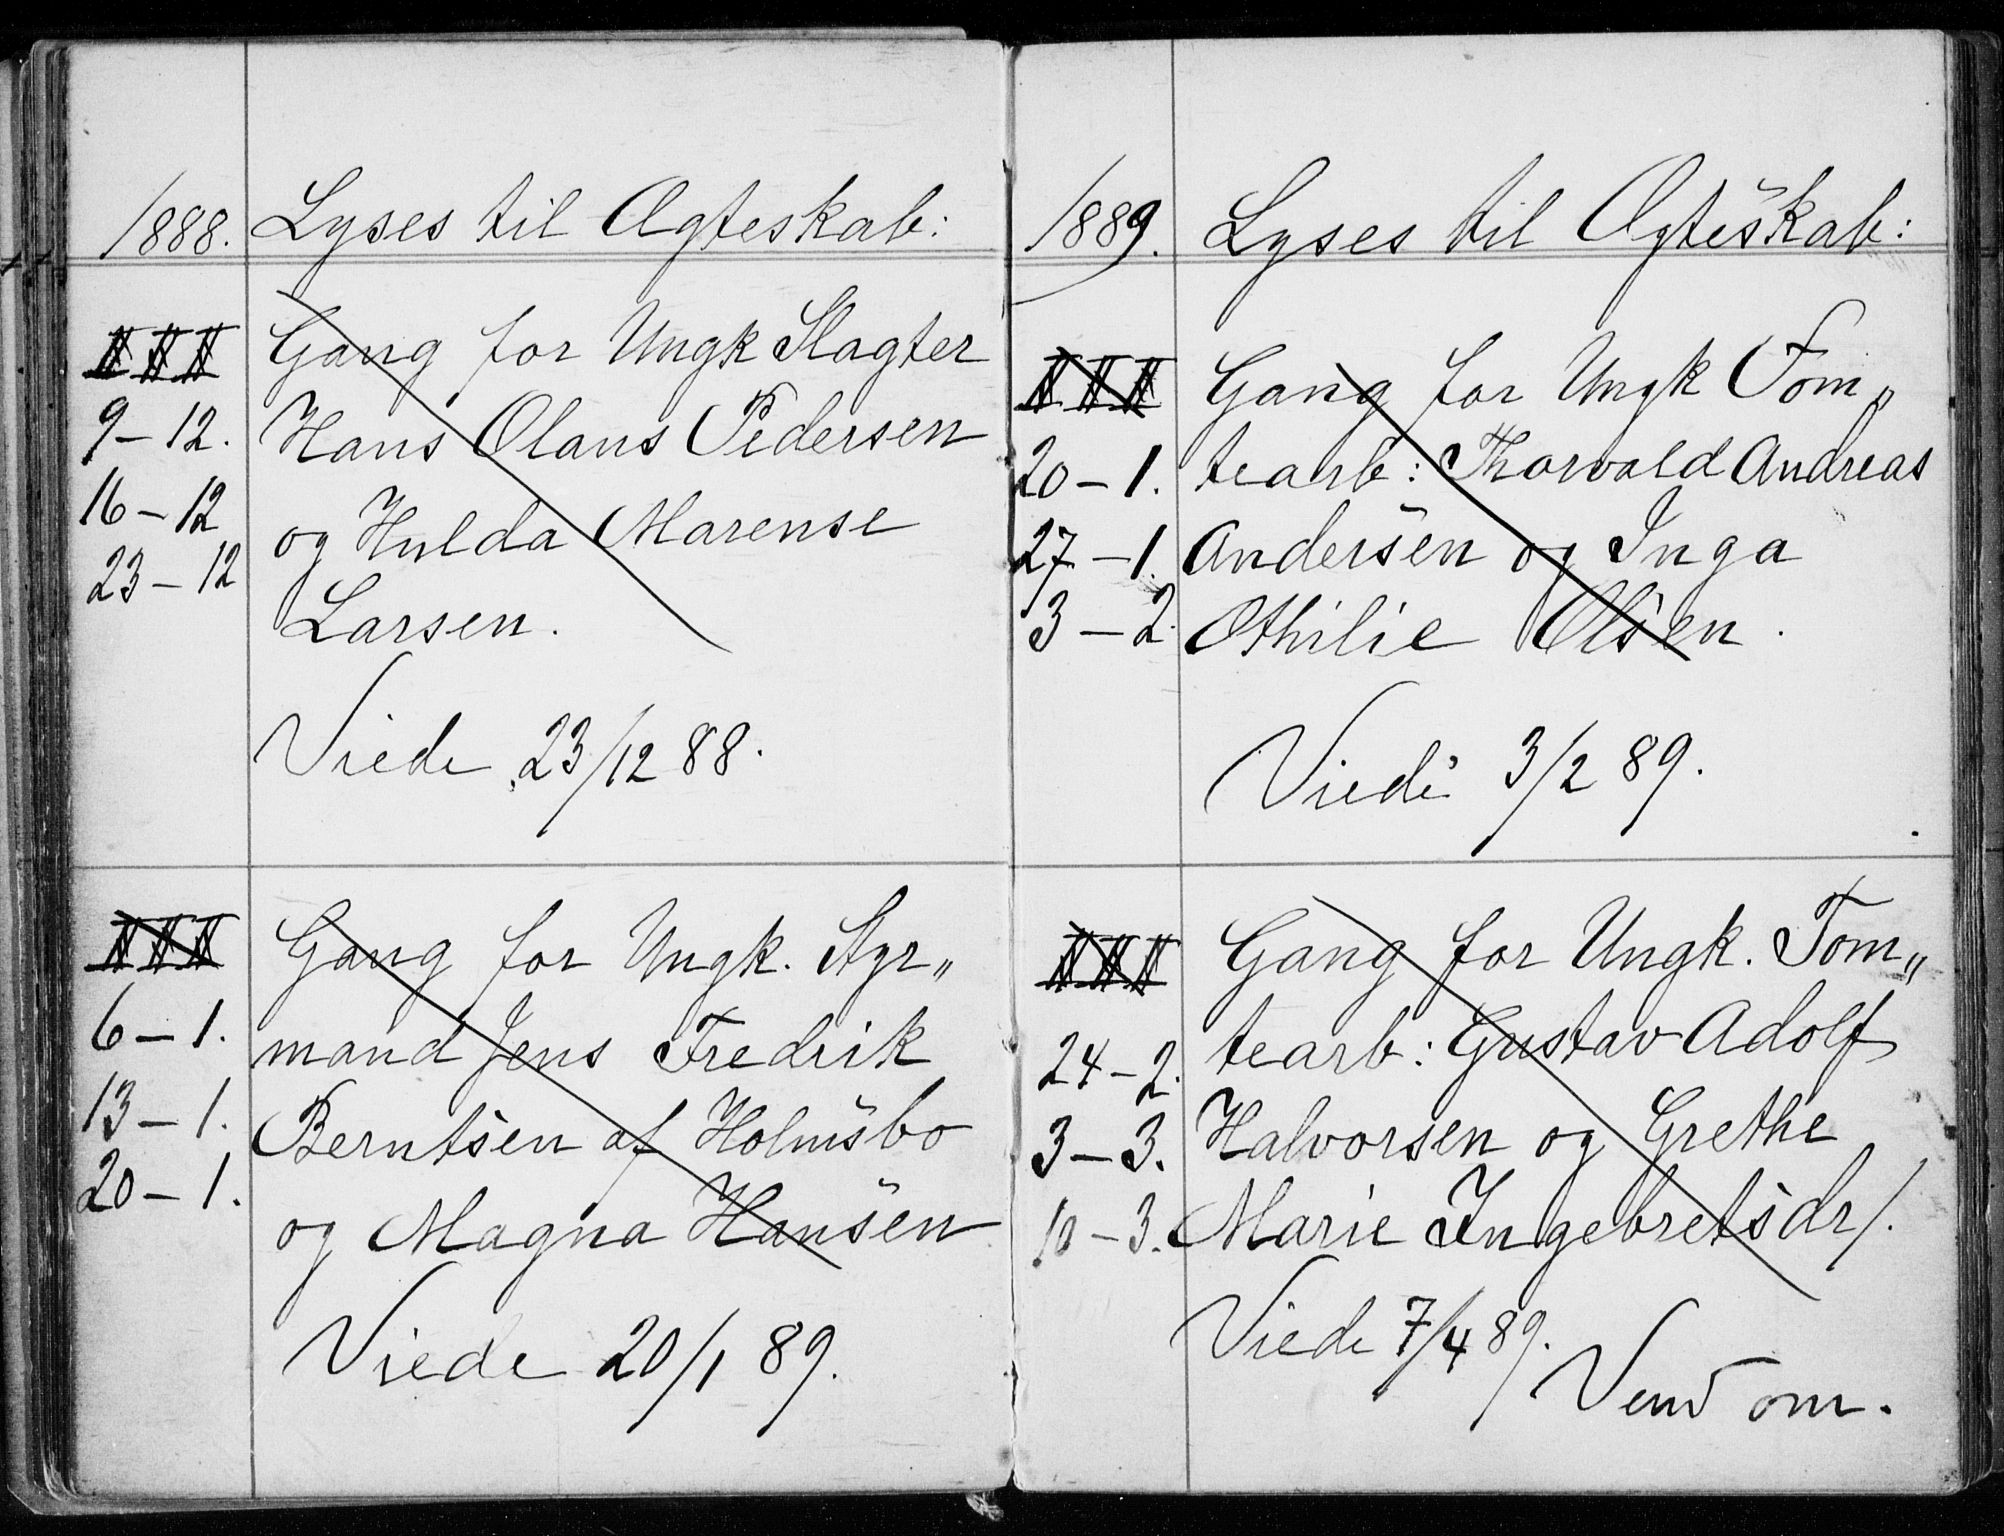 1888. Lyses til Ægteskab:
III Gang for Ungk Slagter
9-12. Hans Olaus Pedersen
16-12 og Hulda Marense
23-12 Larsen.
Viede 23/12 88.
III Gang for Ungk. Styr„
6-1. mand Jens Fredrik
13-1. Berntsen af Holmsbo
20-1. og Magna Hansen
Viede 20/1 89.
1889. Lyses til Ægteskab:
III Gang for Ungk Tom„
20-1. tearb: Thorvald Andreas
27-1. Andersen og Inga
3-2. Othilie Olsen.
Viede 3/2 89.
III Gang for Ungk. Tom„
24-2. tearb: Gustav Adolf
3-3. Halvorsen og Grethe
10-3. Marie Ingebretsdr/.
Viede 7/4 89.
Vend om.